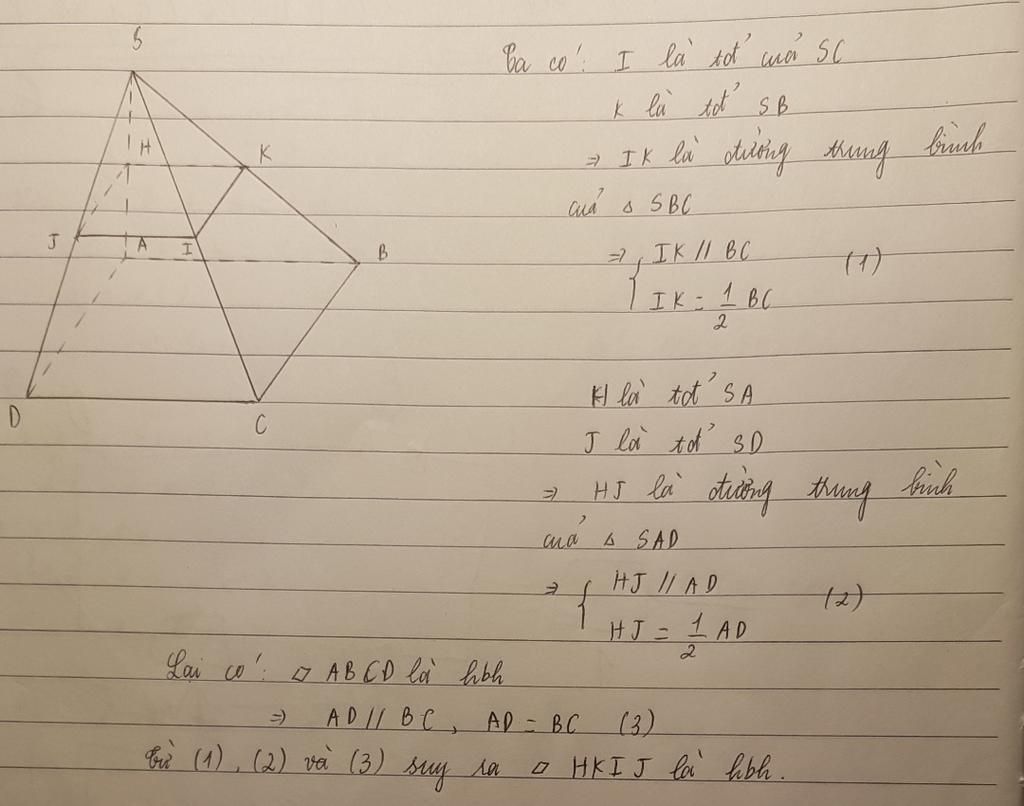 S
H
K
J
A
I
B
D
C
Ta có: I là tđ' của SC
K là tđ' SB
⇒ IK là đường trung bình
của △ SBC
⇒ { IK // BC (1)
IK = 1/2 BC
H là tđ' SA
J là tđ' SD
⇒ HJ là đường trung bình
của △ SAD
⇒ { HJ // AD (2)
HJ = 1/2 AD
Lại có: ▱ ABCD là hbh
⇒ AD // BC, AD = BC (3)
Từ (1), (2) và (3) suy ra ▱ HKIJ là hbh.